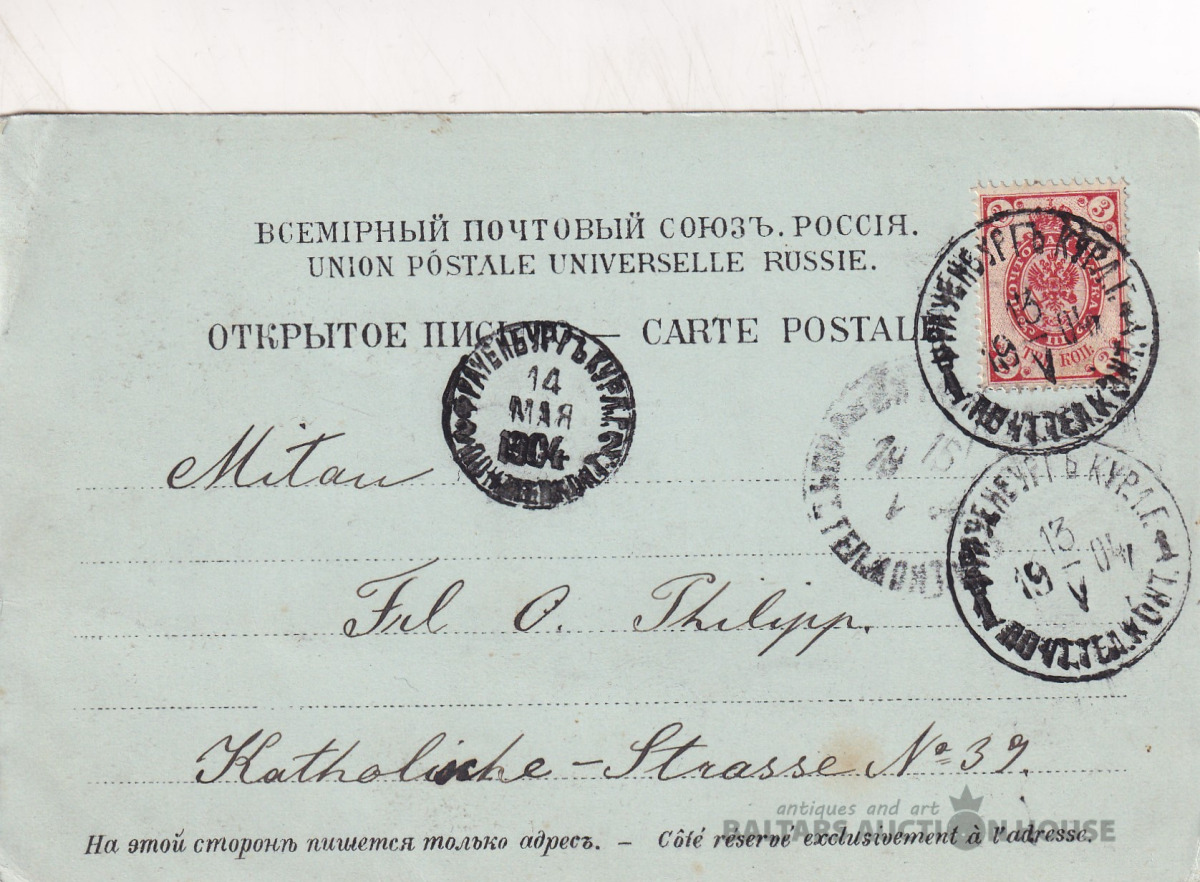 ВСЕМІРНЫЙ ПОЧТОВЫЙ СОЮЗЪ. РОССІЯ.
UNION PÓSTALE UNIVERSELLE RUSSIE.
ОТКРЫТОЕ ПИС — CARTE POSTALE
3
3
ТРИ КОП.
ФРАУЕНБУРГЪ КУРЛ.Г.
13 V 1904
ПОЧТ.ТЕЛ.КОНТ.
ФРАУЕНБУРГЪ КУРЛ.Г.
14
МАЯ
1904
15 V
ТЕЛ.КОНТ.
ФРАУЕНБУРГЪ КУРЛ.Г.
13 V 1904
ПОЧТ.ТЕЛ.КОНТ.
Mitau
Frl O. Philipp.
Katholische-Strasse № 39.
antiques and art
BALTARS AUCTION HOUSE
На этой сторонѣ пишется только адресъ. — Côté réservé exclusivement à l'adresse.